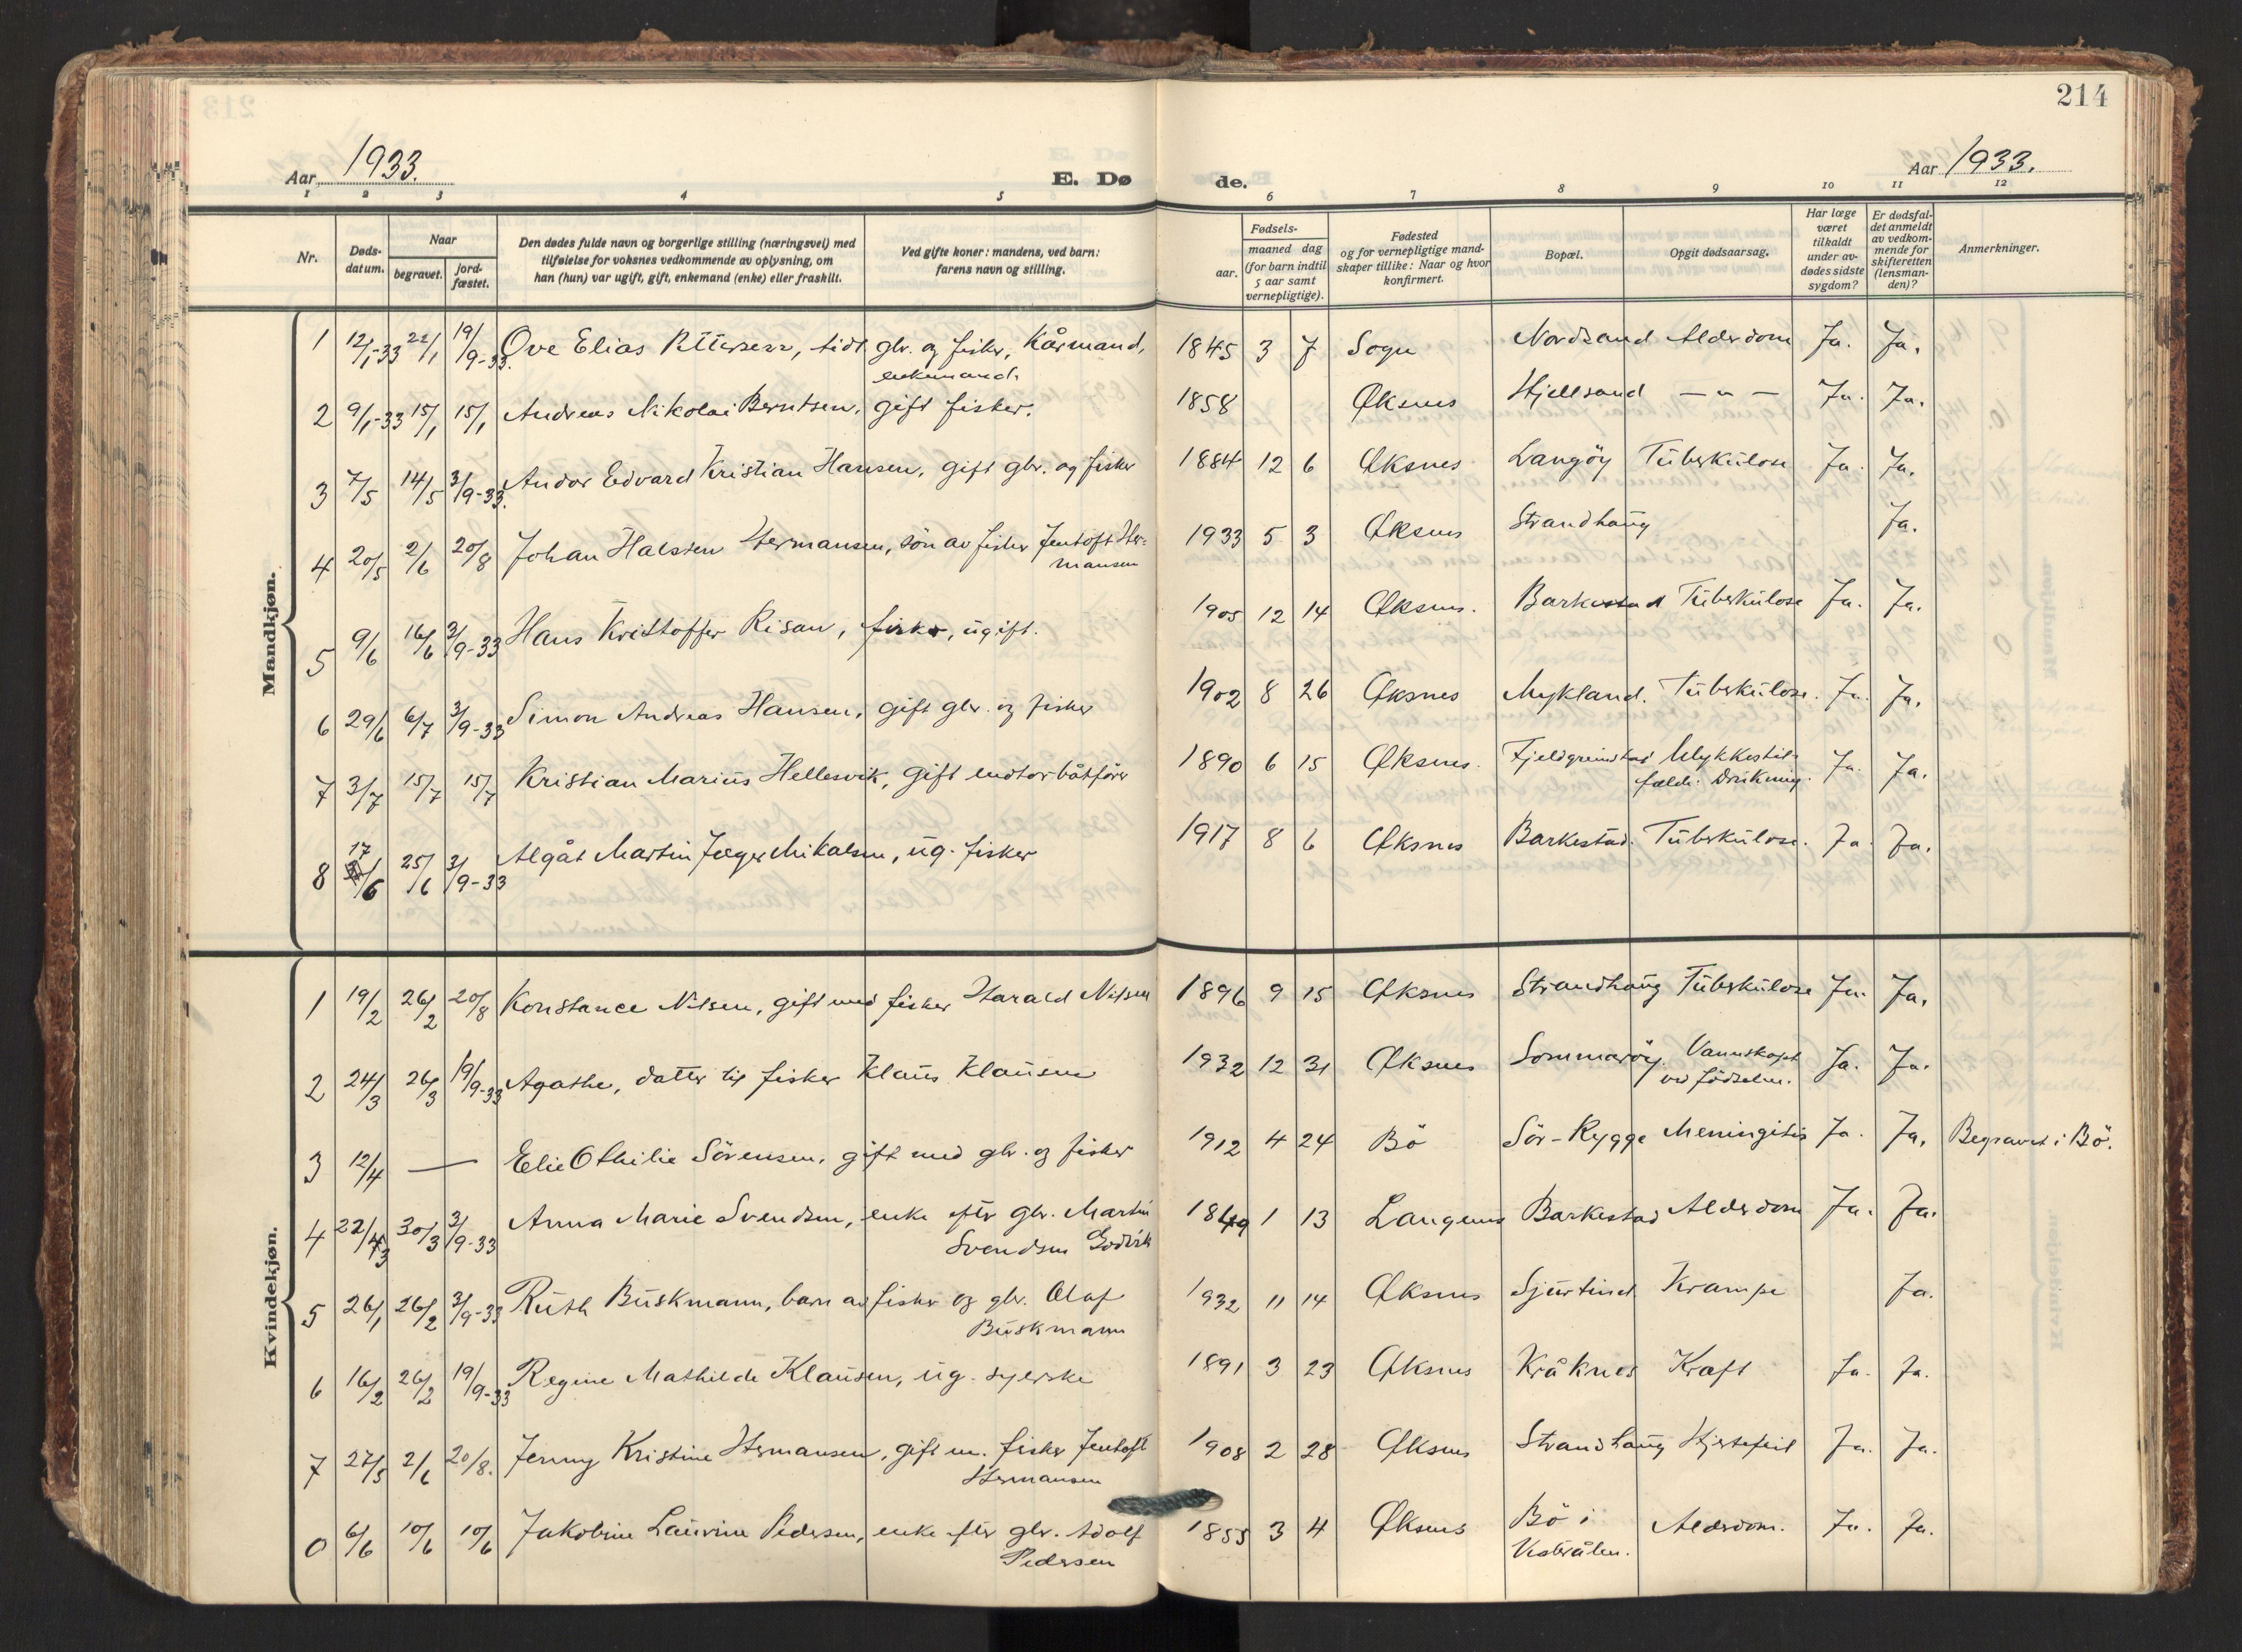 214
Aar 1933. E. Dø de. Aar 1933.
1 2 3 4 5 6 7 8 9 10 11 12
Nr. Døds-datum. Naar begravet. jord-fæstet. Den dødes fulde navn og borgerlige stilling (næringsvei) med tilføielse for voksnes vedkommende av oplysning, om han (hun) var ugift, gift, enkemand (enke) eller fraskilt. Ved gifte koner: mandens, ved barn: farens navn og stilling. Fødsels- aar. maaned dag (for barn indtil 5 aar samt vernepligtige). Fødested og for vernepligtige mandskaper tillike: Naar og hvor konfirmert. Bopæl. Opgit dødsaarsag. Har læge været tilkaldt under avdødes sidste sygdom? Er dødsfaldet anmeldt av vedkommende for skifteretten (lensmanden)? Anmerkninger.
Mandkjøn.
1 12/1-33 22/1 19/9-33. Ove Elias Pettersen, tidl. gbr. og fisker, Kårmand, enkemand. 1845 3 7 Sogn Nordsand Alderdom Ja. Ja.
2 9/1-33 15/1 15/1 Andreas Nikolai Berntsen, gift fisker. 1858 Øksnes Hjellsand — " — Ja. Ja.
3 7/5 14/5 3/9-33. Andor Edvard Kristian Hansen, gift gbr. og fisker 1884 12 6 Øksnes Langöy Tüberkülose Ja. Ja.
4 20/5 2/6 20/8 Johan Halsten Hermansen, sön av fisker Jentoft Hermansen 1933 5 3 Øksnes Strandhaüg Ja.
5 9/6 16/6 3/9-33 Hans Kristoffer Risan, fisker, ügift. 1905 12 14 Øksnes. Barkestad Tüberkülose Ja. Ja.
6 29/6 6/7 3/9-33 Simon Andreas Hansen, gift gbr. og fisker 1902 8 26 Øksnes Mykland. Tüberkülose. Ja. Ja.
7 3/7 15/7 15/7 Kristian Mariüs Hellesvik, gift motorbåtförer 1890 6 15 Øksnes. Fjeldgrimstad Ulykkestilfælde: Drukning. Ja. Ja.
8 17/6 25/6 3/9-33 Algåt Martin Jæger Mikalsen, üg. fisker 1917 8 6 Øksnes Barkestad. Tüberkülose. Ja. Ja.
Kvindekjøn.
1 19/2 26/2 20/8 Konstance Nilsen, gift med fisker Harald Nilsen 1896 9 15 Øksnes Strandhaüg Tüberkülose Ja. Ja.
2 24/3 26/3 19/9-33 Agathe, datter til fisker Klaüs Klaüsen 1932 12 31 Øksnes Sommaröy. Vannskapt ved födselen. Ja. Ja.
3 12/4 — Elie Othilie Sörensen, gift med gbr. og fisker 1912 4 24 Bö Sör-Rygge Meningitis Ja. Ja. Begravet i Bö.
4 22/3 30/3 3/9-33 Anna Marie Svendsen, enke efter gbr. Martin Svendsen Godvik 1849 1 13 Langenes Barkestad Alderdom Ja. Ja.
5 26/1 26/2 3/9-33 Rüth Büskmann, barn av fisker og gbr. Olaf Büskmann 1932 11 14 Øksnes Sjürtind Krampe Ja.
6 16/2 26/2 19/9-33 Regine Mathilde Klaüsen, üg. syerske 1891 3 23 Øksnes Kråknes Kræft Ja. Ja.
7 27/5 2/6 20/8. Jenny Kristine Hermansen, gift m. fisker Jentoft Hermansen 1908 2 28 Øksnes Strandhaüg Hjertefeil Ja. Ja.
0 6/6 10/6 10/6 Jakobine Laürine Pedersen, enke efter gbr. Adolf Pedersen 1855 3 4 Øksnes Bö i Vesterålen. Alderdom. Ja. Ja.